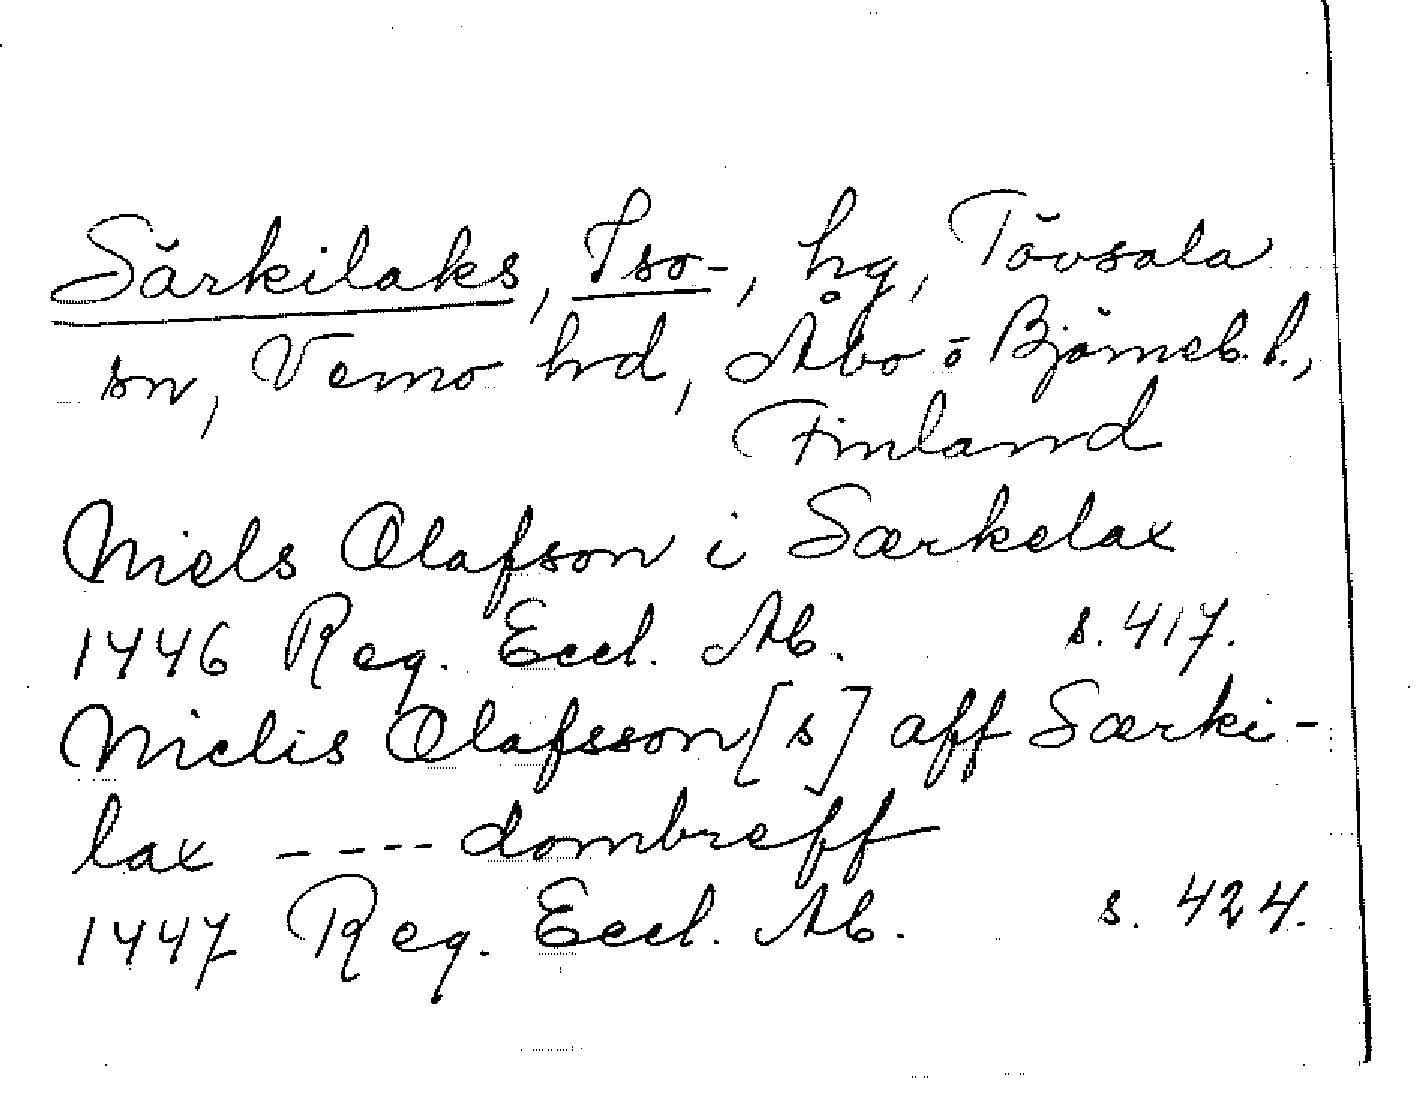 Särkilaks, Iso-, hg, Tövsala
sn, Vemo hrd, Åbo o Björneb. l.,
Finland
Niels Olafson i Særkelax
1446 Reg. Eccl. Ab. s. 417.
Nielis Olafsson[s] aff Særki-
lax ---- dombreff
1447 Reg. Eccl. Ab. s. 424.